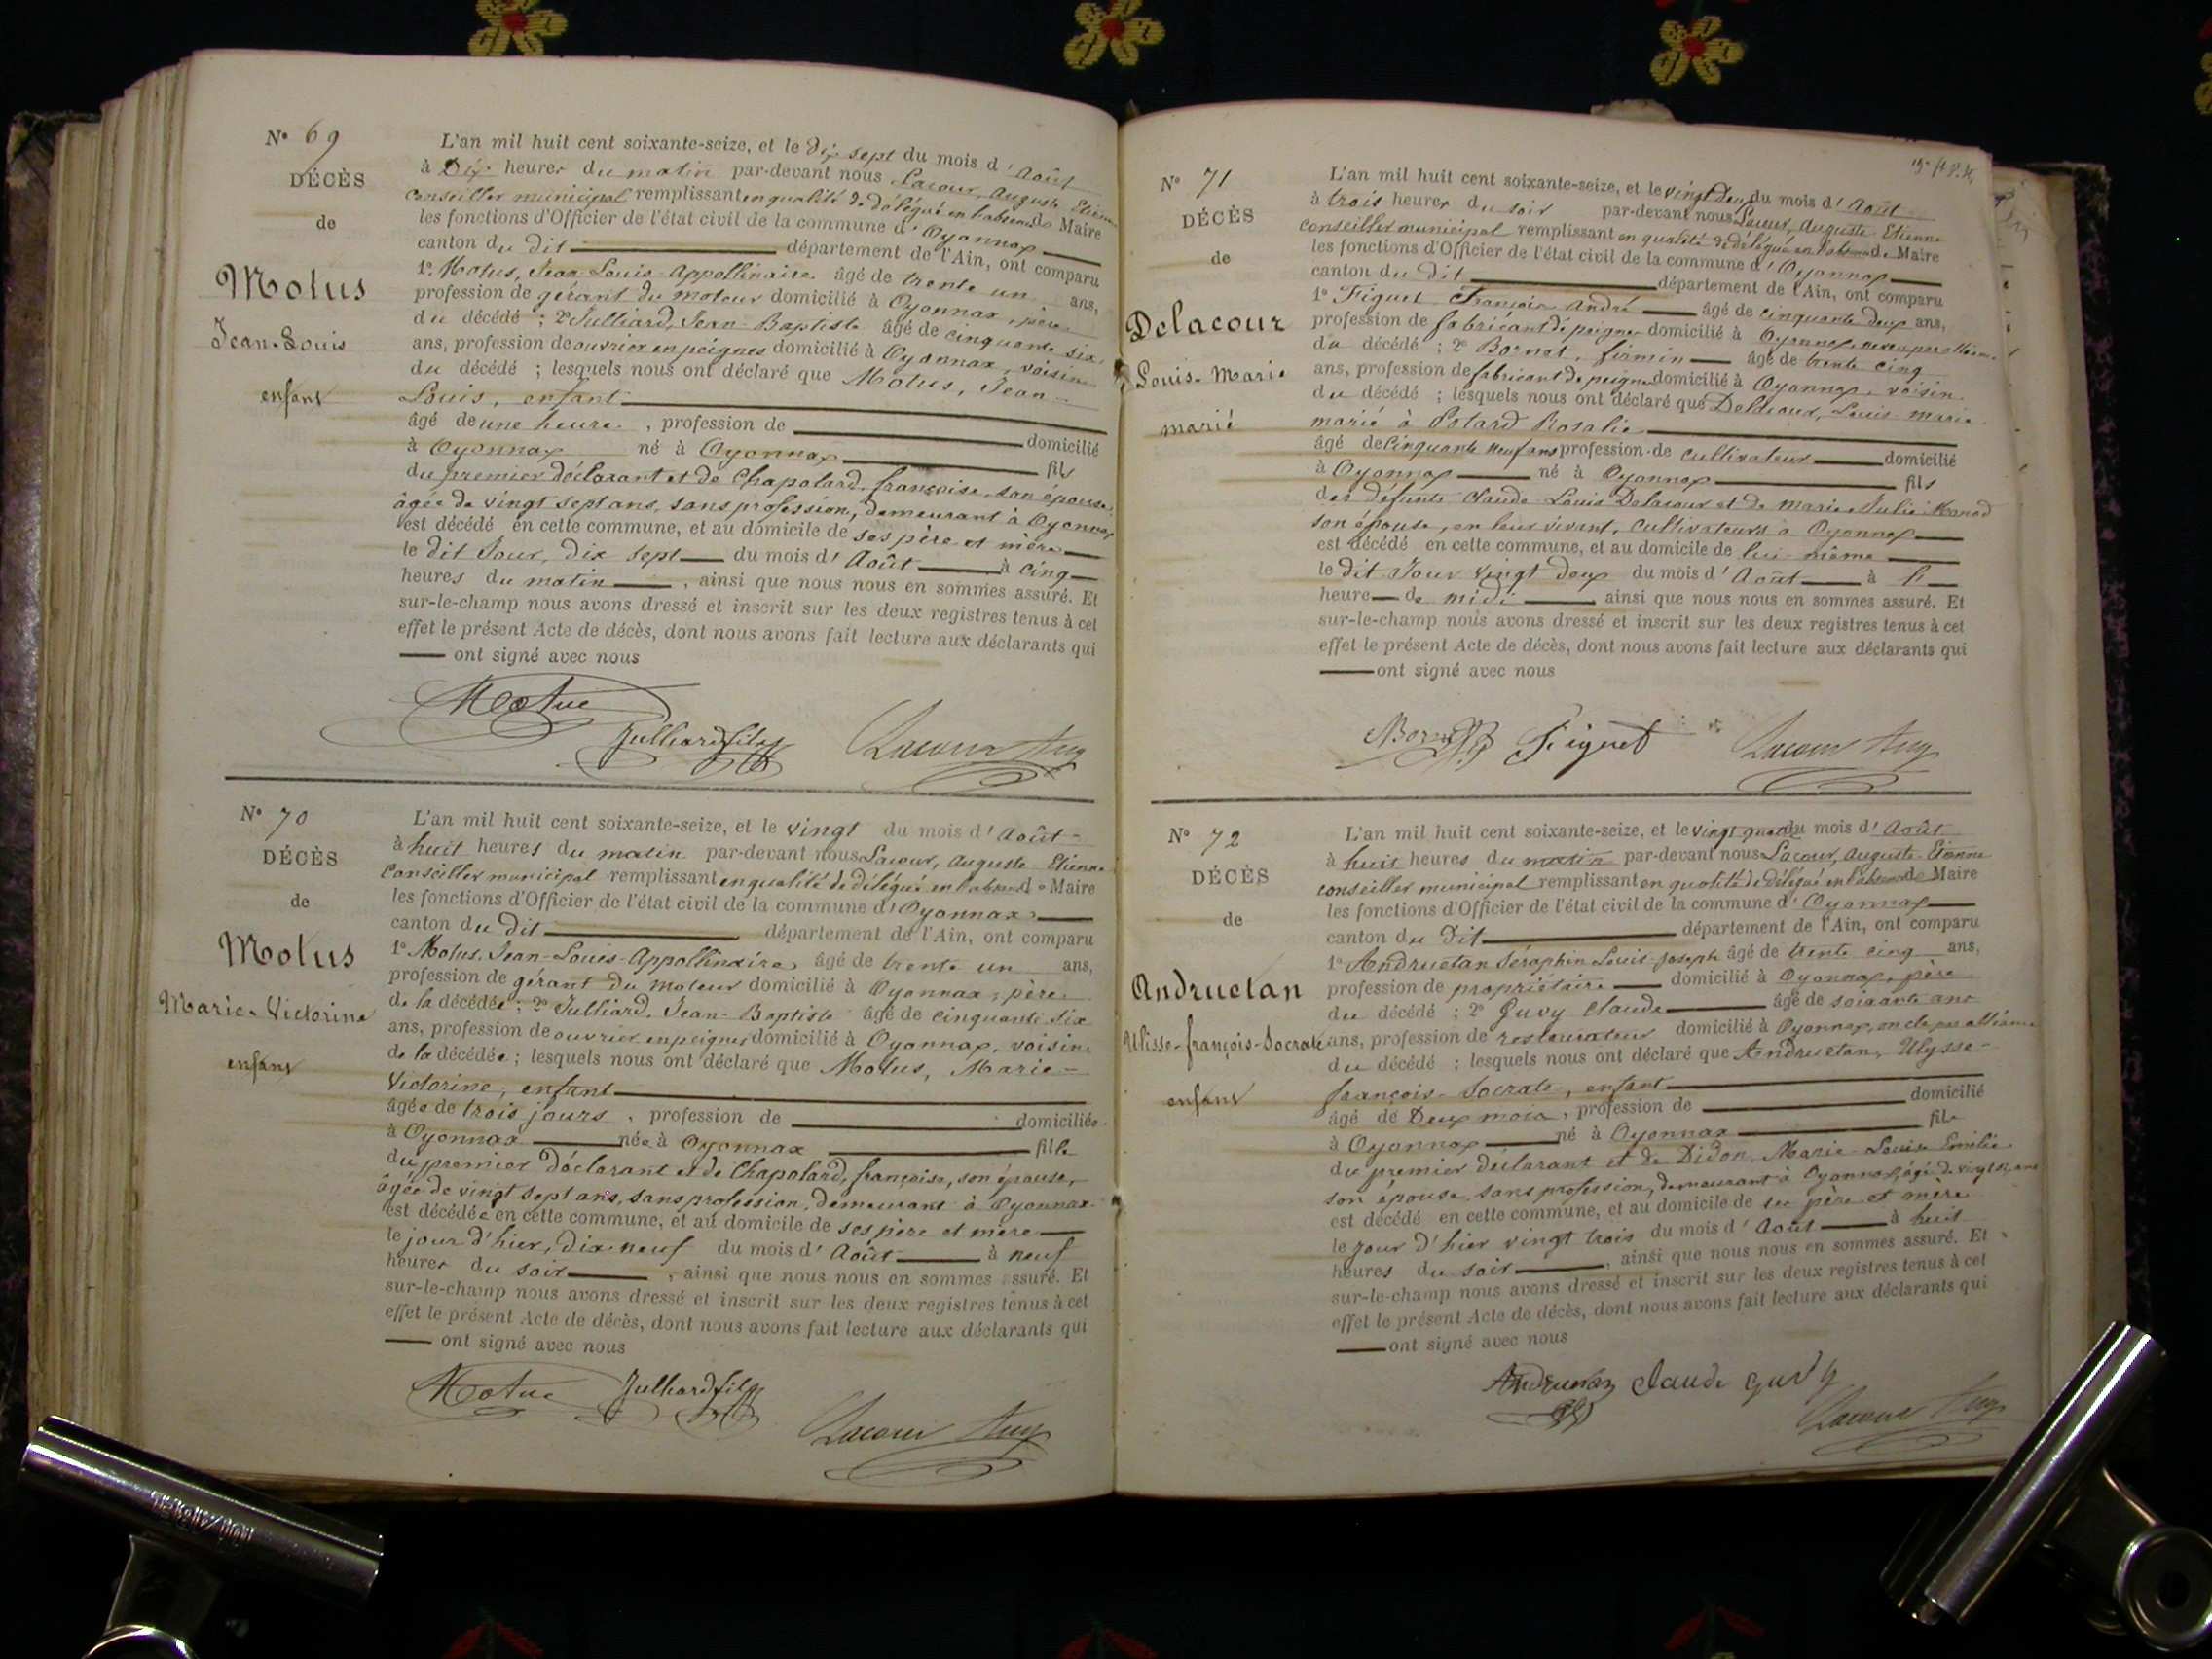 N° 69
DÉCÈS
de
Molus
Jean-Louis
enfant
L'an mil huit cent soixante-seize, et le dix sept du mois d'Août
à Dix heures du matin par-devant nous Lacour, Auguste Etienne
conseiller municipal remplissant en qualité de délégué en l'absence de Maire
les fonctions d'Officier de l'état civil de la commune d'Oyonnax
canton du dit département de l'Ain, ont comparu
1° Molus, Jean-Louis-Appollinaire âgé de trente un ans,
profession de gérant du moteur domicilié à Oyonnax, père
du décédé ; 2° Julliard, Jean-Baptiste âgé de cinquante six
ans, profession de ouvrier en peignes domicilié à Oyonnax, voisin
du décédé ; lesquels nous ont déclaré que Molus, Jean-
Louis, enfant
âgé de une heure, profession de domicilié
à Oyonnax né à Oyonnax fils
du premier déclarant et de Chapolard, françoise, son épouse,
âgée de vingt sept ans, sans profession, demeurant à Oyonnax
est décédé en cette commune, et au domicile de ses père et mère
le dit Jour, dix sept du mois d'Août à cinq
heures du matin, ainsi que nous nous en sommes assuré. Et
sur-le-champ nous avons dressé et inscrit sur les deux registres tenus à cet
effet le présent Acte de décès, dont nous avons fait lecture aux déclarants qui
ont signé avec nous
Motus
Julliard fils
Lacour Aug
N° 70
DÉCÈS
de
Molus
Marie-Victorine
enfant
L'an mil huit cent soixante-seize, et le vingt du mois d'Août
à huit heures du matin par-devant nous Lacour, Auguste Etienne
conseiller municipal remplissant en qualité de délégué en l'absence de Maire
les fonctions d'Officier de l'état civil de la commune d'Oyonnax
canton du dit département de l'Ain, ont comparu
1° Molus, Jean-Louis-Appollinaire âgé de trente un ans,
profession de gérant du moteur domicilié à Oyonnax, père
de la décédée ; 2° Julliard, Jean-Baptiste âgé de cinquante six
ans, profession de ouvrier en peignes domicilié à Oyonnax, voisin
de la décédée ; lesquels nous ont déclaré que Molus, Marie-
Victorine, enfant
âgée de trois jours, profession de domiciliée
à Oyonnax née à Oyonnax fille
du premier déclarant et de Chapolard, françoise, son épouse,
âgée de vingt sept ans, sans profession, demeurant à Oyonnax
est décédée en cette commune, et au domicile de ses père et mère
le jour d'hier, dix-neuf du mois d'Août à neuf
heures du soir, ainsi que nous nous en sommes assuré. Et
sur-le-champ nous avons dressé et inscrit sur les deux registres tenus à cet
effet le présent Acte de décès, dont nous avons fait lecture aux déclarants qui
ont signé avec nous
Motus Julliard fils
Lacour Aug
N° 71
DÉCÈS
de
Delacour
Louis-Marie
marié
L'an mil huit cent soixante-seize, et le vingt deux du mois d'Août
à trois heures du soir par-devant nous Lacour, Auguste Etienne
conseiller municipal remplissant en qualité de délégué en l'absence de Maire
les fonctions d'Officier de l'état civil de la commune d'Oyonnax
canton du dit département de l'Ain, ont comparu
1° Figuet François André âgé de cinquante deux ans,
profession de fabricant de peignes domicilié à Oyonnax, neveu par alliance
du décédé ; 2° Bornet, firmin âgé de trente cinq
ans, profession de fabricant de peignes domicilié à Oyonnax, voisin
du décédé ; lesquels nous ont déclaré que Delacour, Louis-Marie
marié à Potard Rosalie
âgé de cinquante neuf ans profession de cultivateur domicilié
à Oyonnax né à Oyonnax fils
des défunts Claude-Louis Delacour et de Marie-Julie Monod
son épouse, en leur vivant, cultivateurs à Oyonnax
est décédé en cette commune, et au domicile de lui même
le dit Jour vingt deux du mois d'Août à
heure de midi ainsi que nous nous en sommes assuré. Et
sur-le-champ nous avons dressé et inscrit sur les deux registres tenus à cet
effet le présent Acte de décès, dont nous avons fait lecture aux déclarants qui
ont signé avec nous
Figuet Lacour Aug
N° 72
DÉCÈS
de
Andruetan
Ulisse-françois-Socrate
enfant
L'an mil huit cent soixante-seize, et le vingt quatre du mois d'Août
à huit heures du matin par-devant nous Lacour, Auguste Etienne
conseiller municipal remplissant en qualité de délégué en l'absence de Maire
les fonctions d'Officier de l'état civil de la commune d'Oyonnax
canton du Dit département de l'Ain, ont comparu
1° Andruetan Séraphin Louis Joseph âgé de trente cinq ans,
profession de propriétaire domicilié à Oyonnax, père
du décédé ; 2° Guvy Claude âgé de soixante ans
ans, profession de restaurateur domicilié à Oyonnax, oncle par alliance
du décédé ; lesquels nous ont déclaré que Andruetan, Ulysse-
françois-Socrate, enfant
âgé de Deux mois, profession de domicilié
à Oyonnax né à Oyonnax fils
du premier déclarant et de Didon, Marie-Louise Emilie
son épouse, sans profession, demeurant à Oyonnax, âgée de vingt ans
est décédé en cette commune, et au domicile de ses père et mère
le jour d'hier vingt trois du mois d'Août à huit
heures du soir, ainsi que nous nous en sommes assuré. Et
sur-le-champ nous avons dressé et inscrit sur les deux registres tenus à cet
effet le présent Acte de décès, dont nous avons fait lecture aux déclarants qui
ont signé avec nous
Andruetan Claude Guvy
Lacour Aug